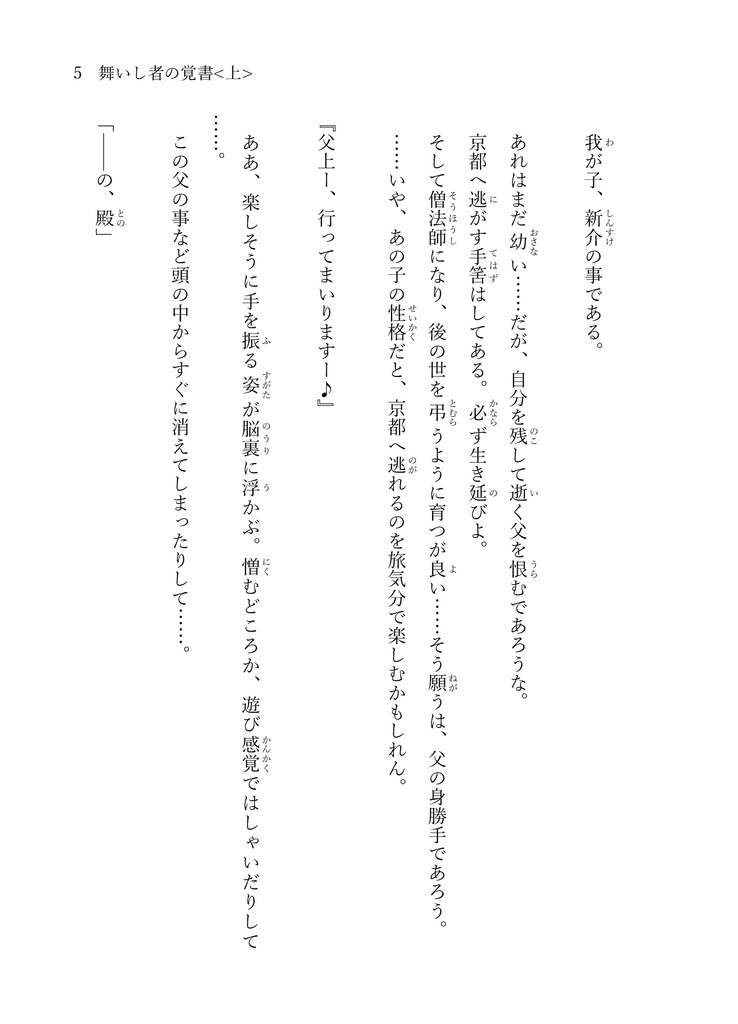 5 舞いし者の覚書<上>
我が子、新介の事である。
あれはまだ幼い……だが、自分を残して逝く父を恨むであろうな。
京都へ逃がす手筈はしてある。必ず生き延びよ。
そして僧法師になり、後の世を弔うように育つが良い……そう願うは、父の身勝手であろう。
……いや、あの子の性格だと、京都へ逃れるのを旅気分で楽しむかもしれん。
『父上ー、行ってまいりますー♪』
ああ、楽しそうに手を振る姿が脳裏に浮かぶ。憎むどころか、遊び感覚ではしゃいだりして
……。
この父の事など頭の中からすぐに消えてしまったりして……。
「――の、殿」